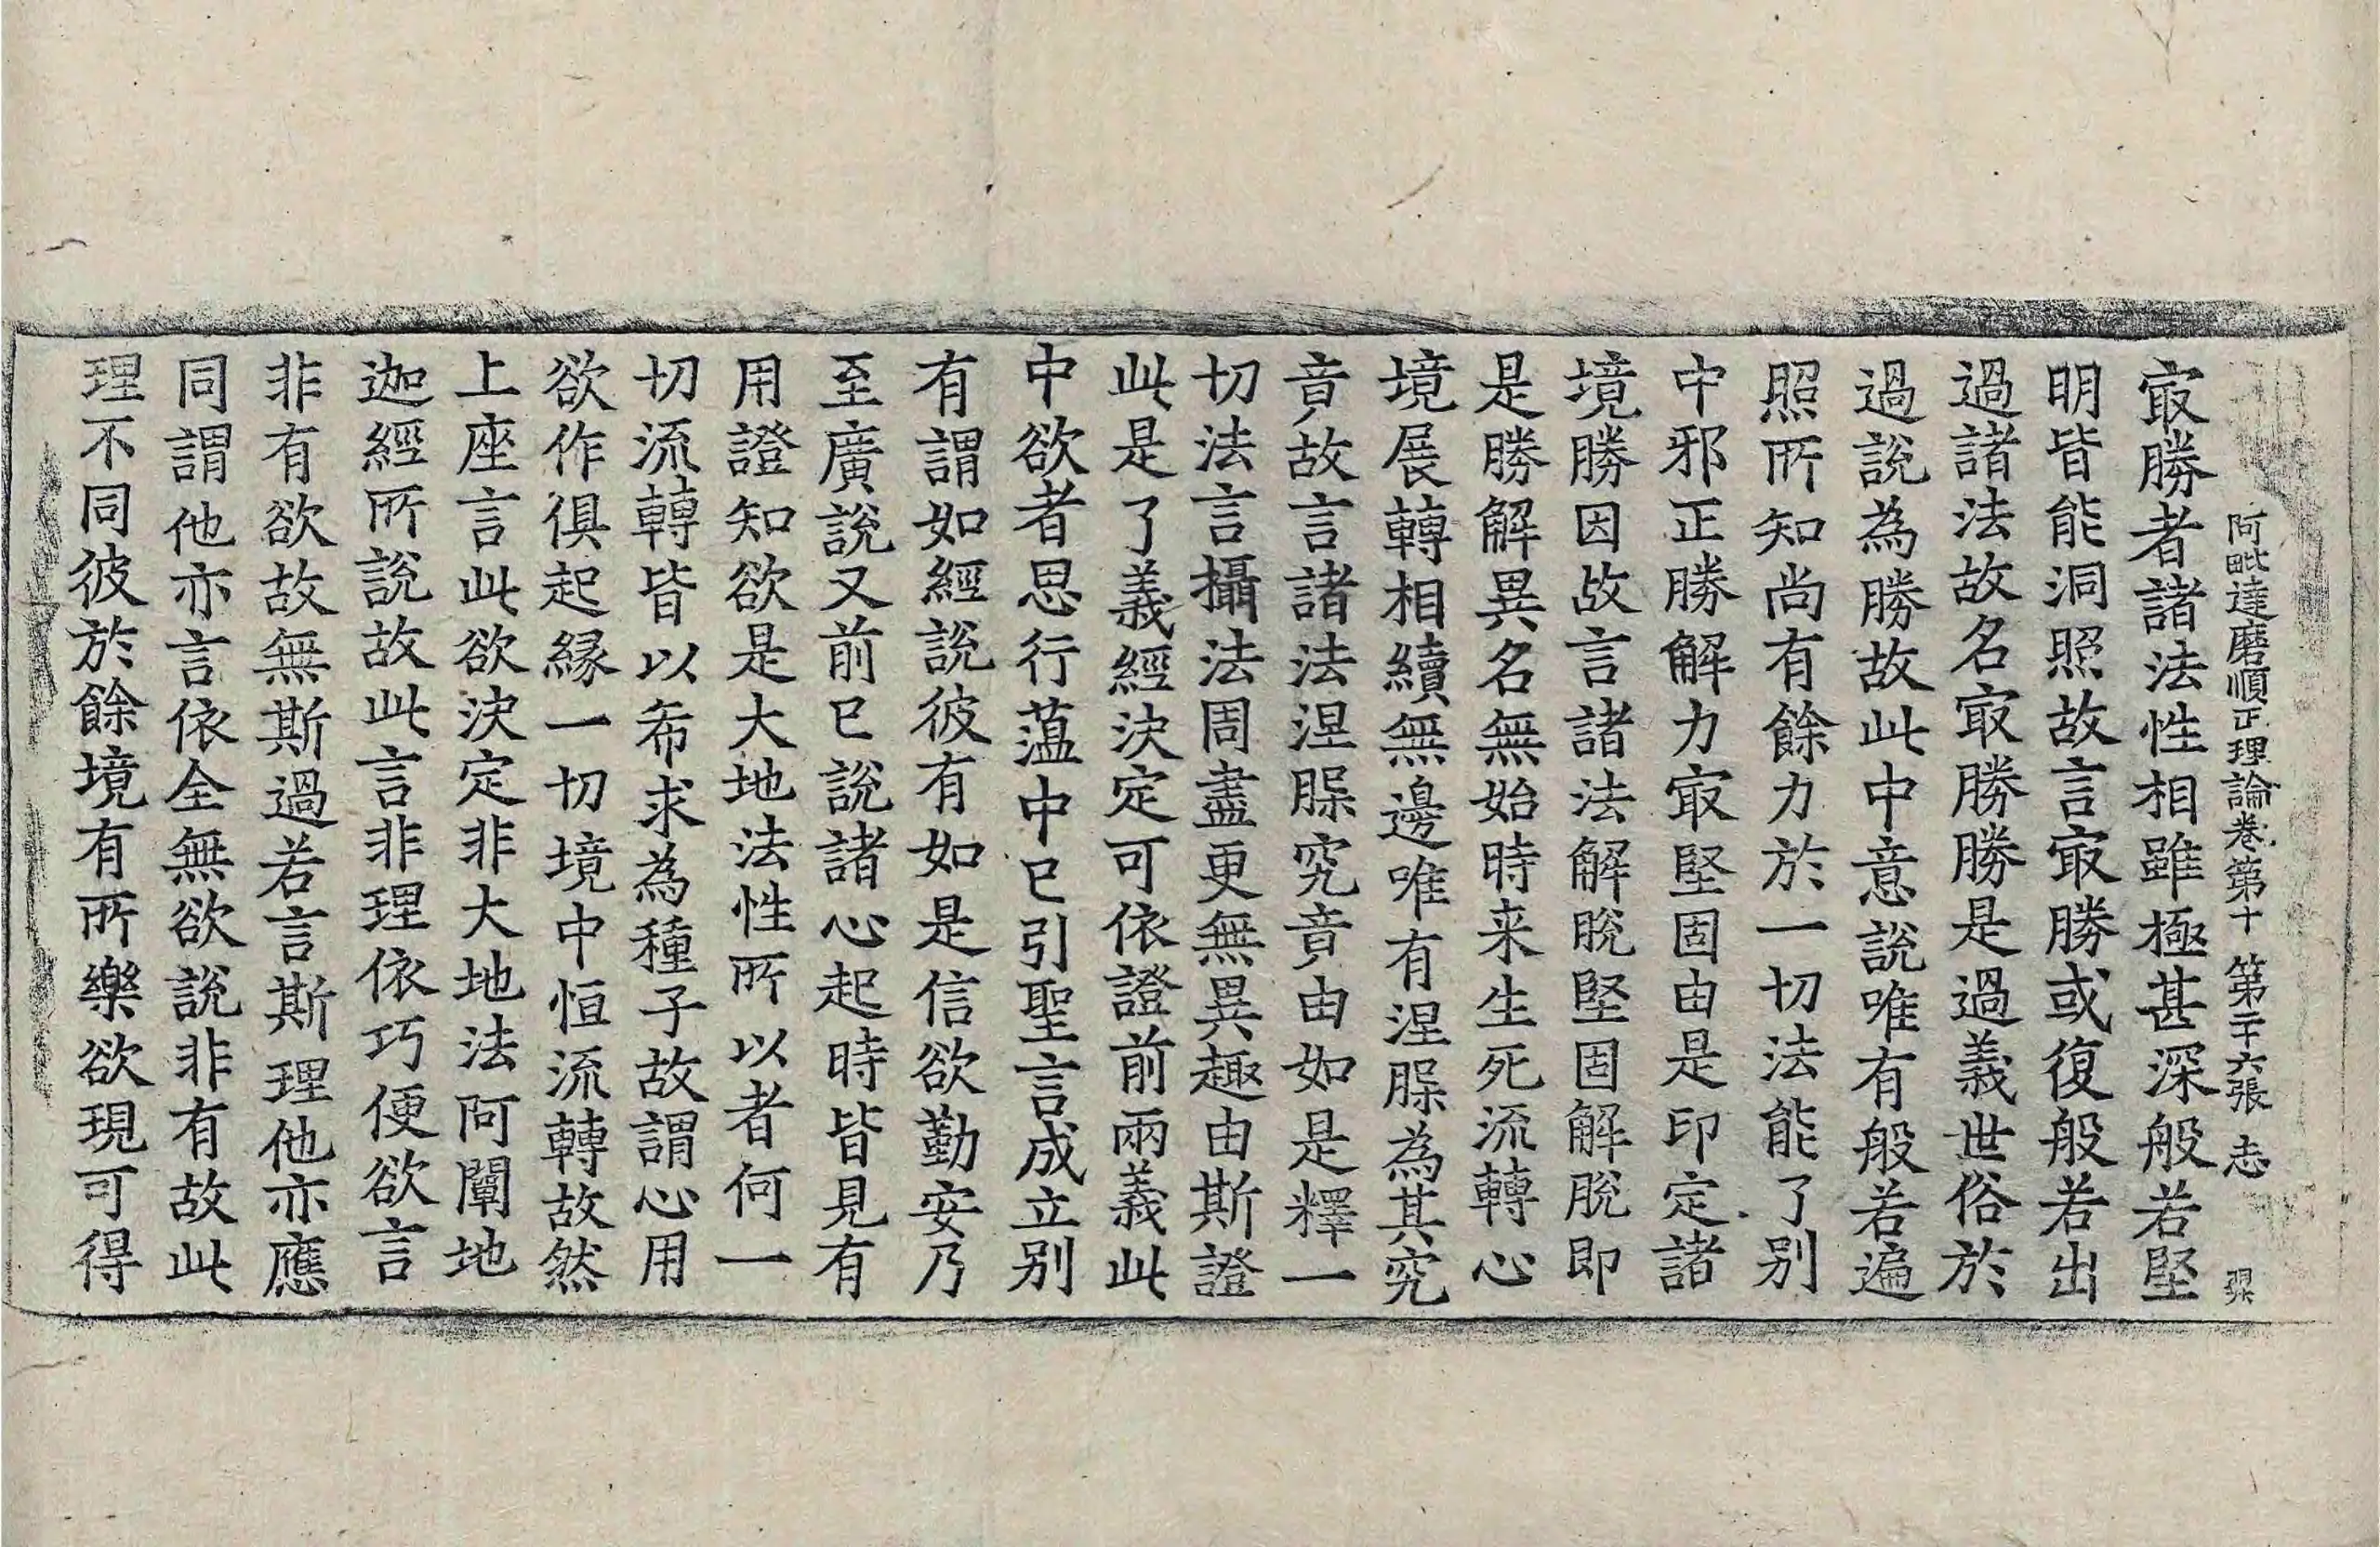 阿毗達磨順正理論卷第十 第二十六張 志
冣勝者諸法性相雖極甚深般若堅
明皆能洞照故言冣勝或復般若出
過諸法故名冣勝勝是過義世俗於
過說為勝故此中意說唯有般若遍
照所知尚有餘力於一切法能了别
中邪正勝解力冣堅固由是印定諸
境勝因故言諸法解脫堅固解脫即
是勝解異名無始時来生死流轉心
境展轉相續無邊唯有涅槃為其究
竟故言諸法涅槃究竟由如是釋一
切法言攝法周盡更無異趣由斯證
此是了義經決定可依證前兩義此
中欲者思行薀中已引聖言成立别
有謂如經說彼有如是信欲勤安乃
至廣說又前已說諸心起時皆見有
用證知欲是大地法性所以者何一
切流轉皆以希求為種子故謂心用
欲作俱起緣一切境中恒流轉故然
上座言此欲決定非大地法阿闡地
迦經所說故此言非理依巧便欲言
非有欲故無斯過若言斯理他亦應
同謂他亦言依全無欲說非有故此
理不同彼於餘境有所樂欲現可得